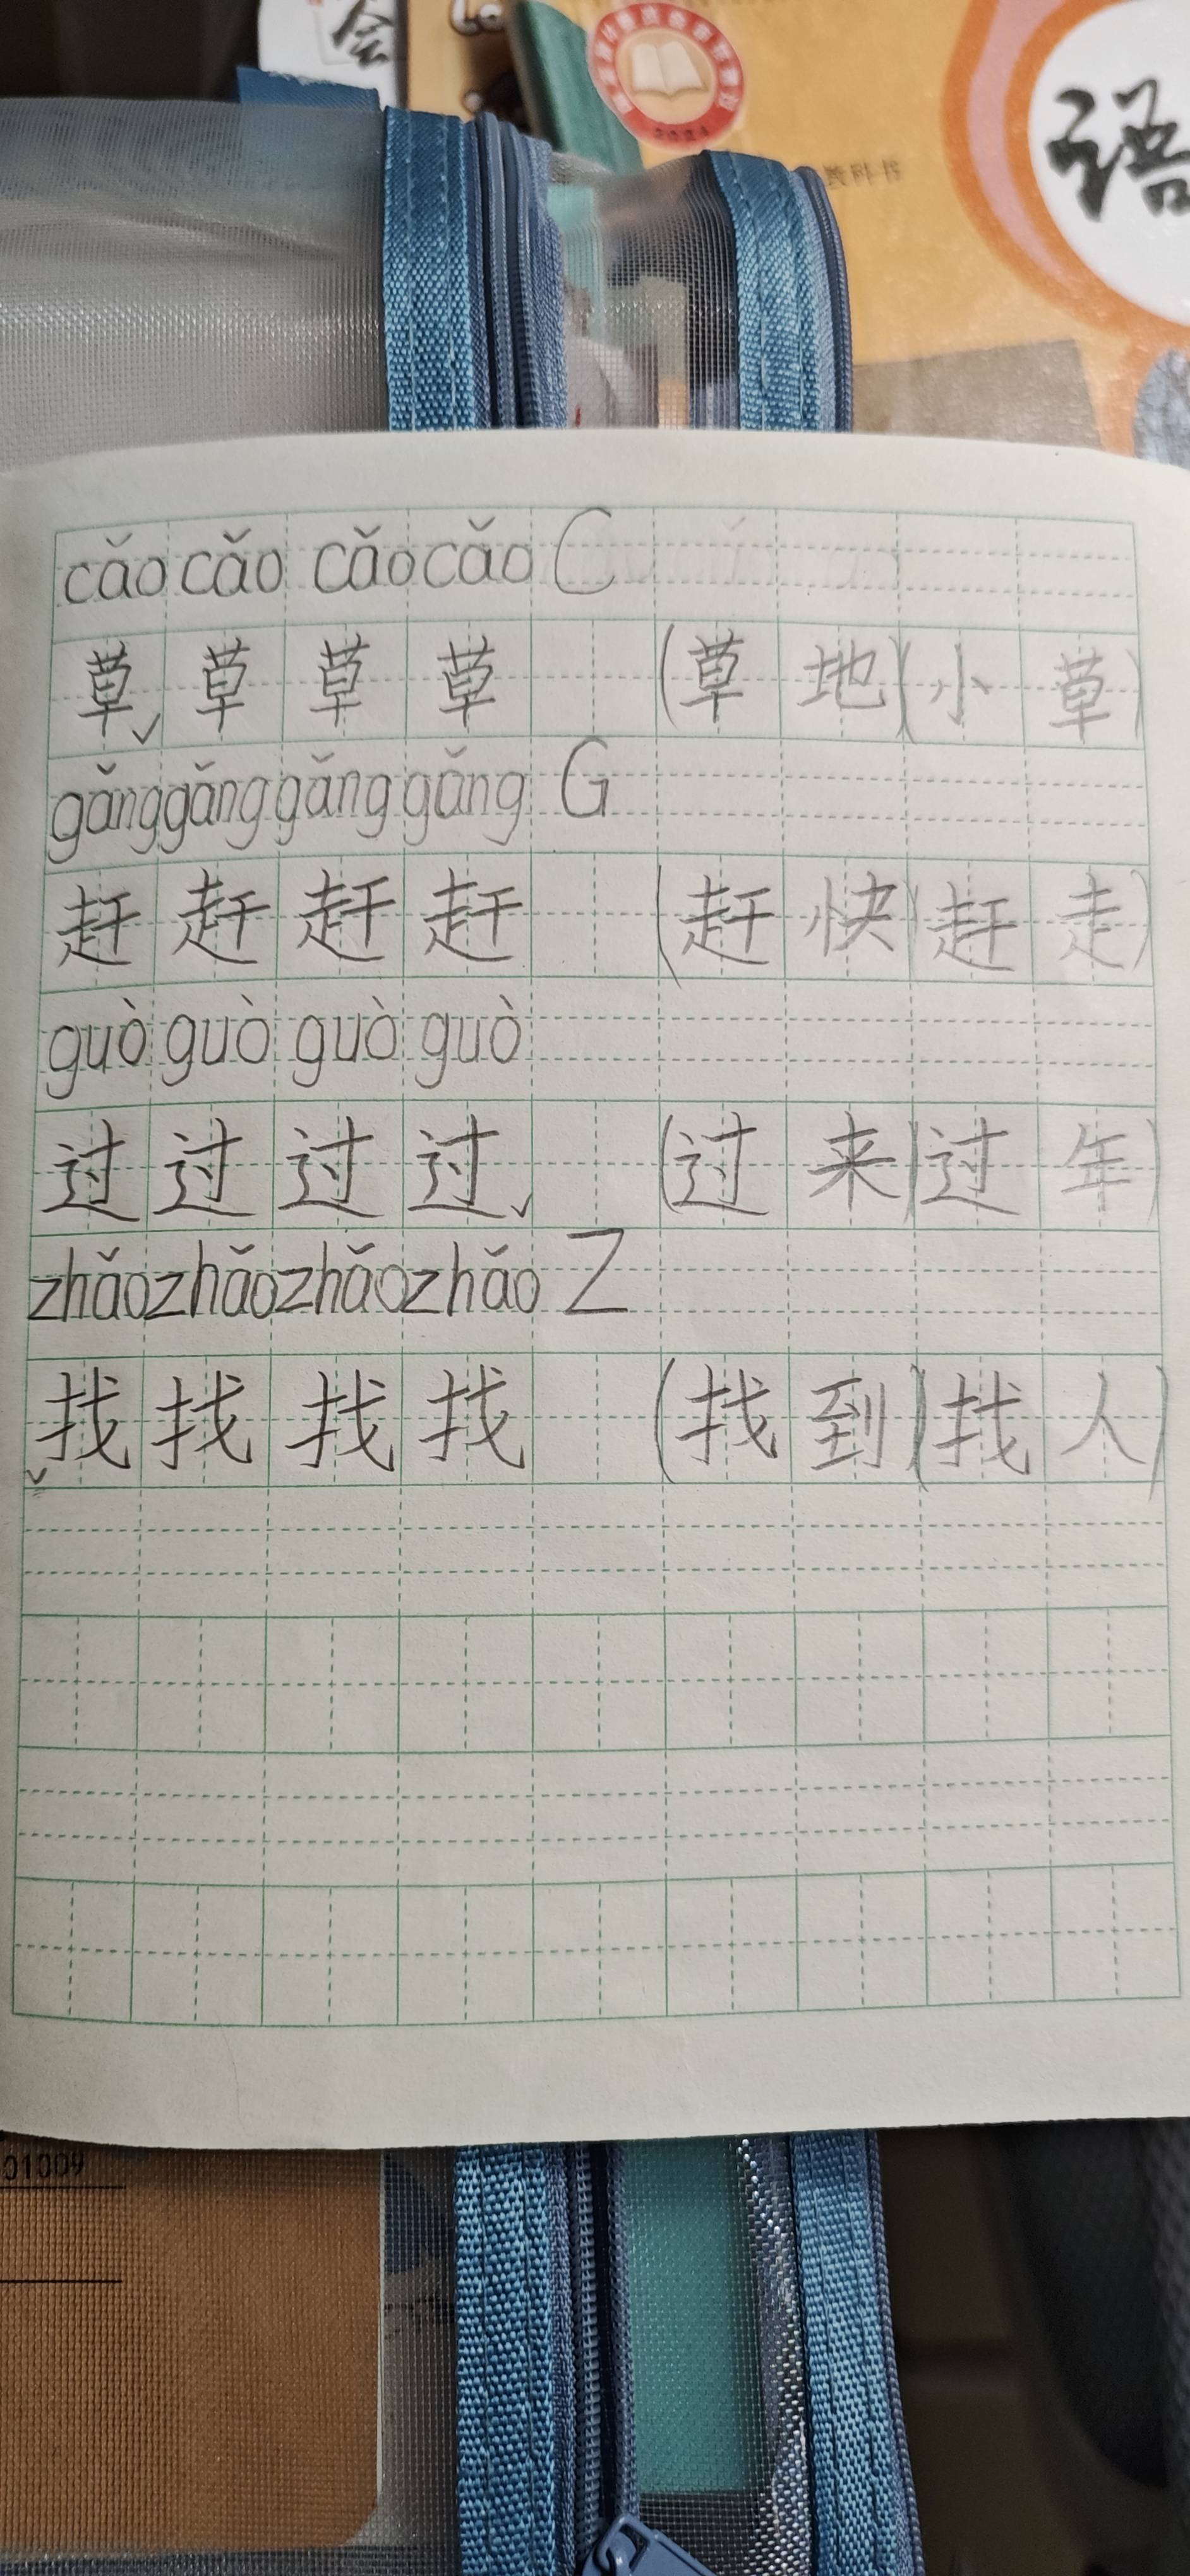 会
语
2024
cǎo cǎo cǎo cǎo C
草 草 草 草 (草地)(小草)
gǎng gǎng gǎng gǎng G
赶 赶 赶 赶 (赶快)(赶走)
guò guò guò guò
过 过 过 过 (过来)(过年)
zhǎo zhǎo zhǎo zhǎo Z
找 找 找 找 (找到)(找人)
01009